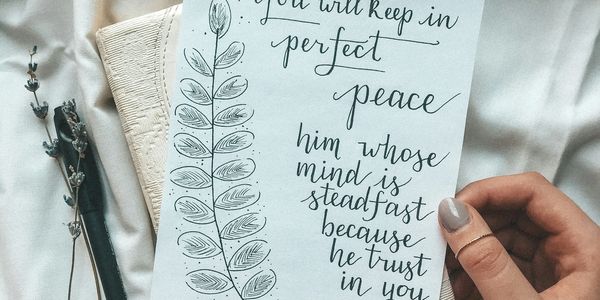 You will keep in
perfect
peace
him whose
mind is
steadfast
because
he trust
in you